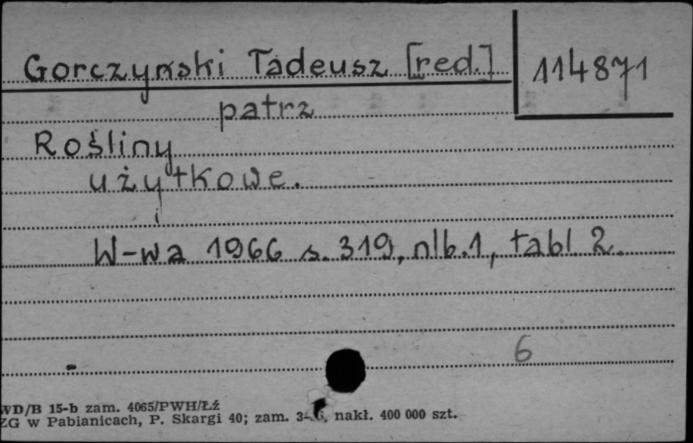 Gorczyński Tadeusz [red.] 114871
patrz
Rośliny
użytkowe.
W-wa 1966 s. 319, nlb.1, tabl 2.
6
WD/B 15-b zam. 4065/PWH/Łź
ZG w Pabianicach, P. Skargi 40; zam. nakł. 400 000 szt.